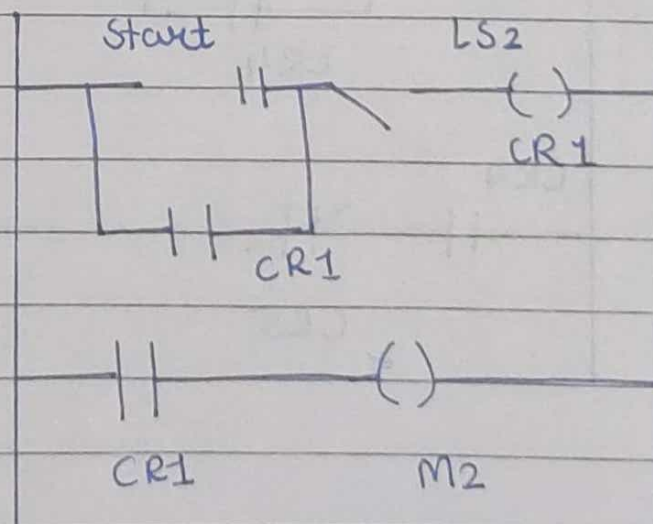 Start LS2
CR1
CR1
CR1 M2